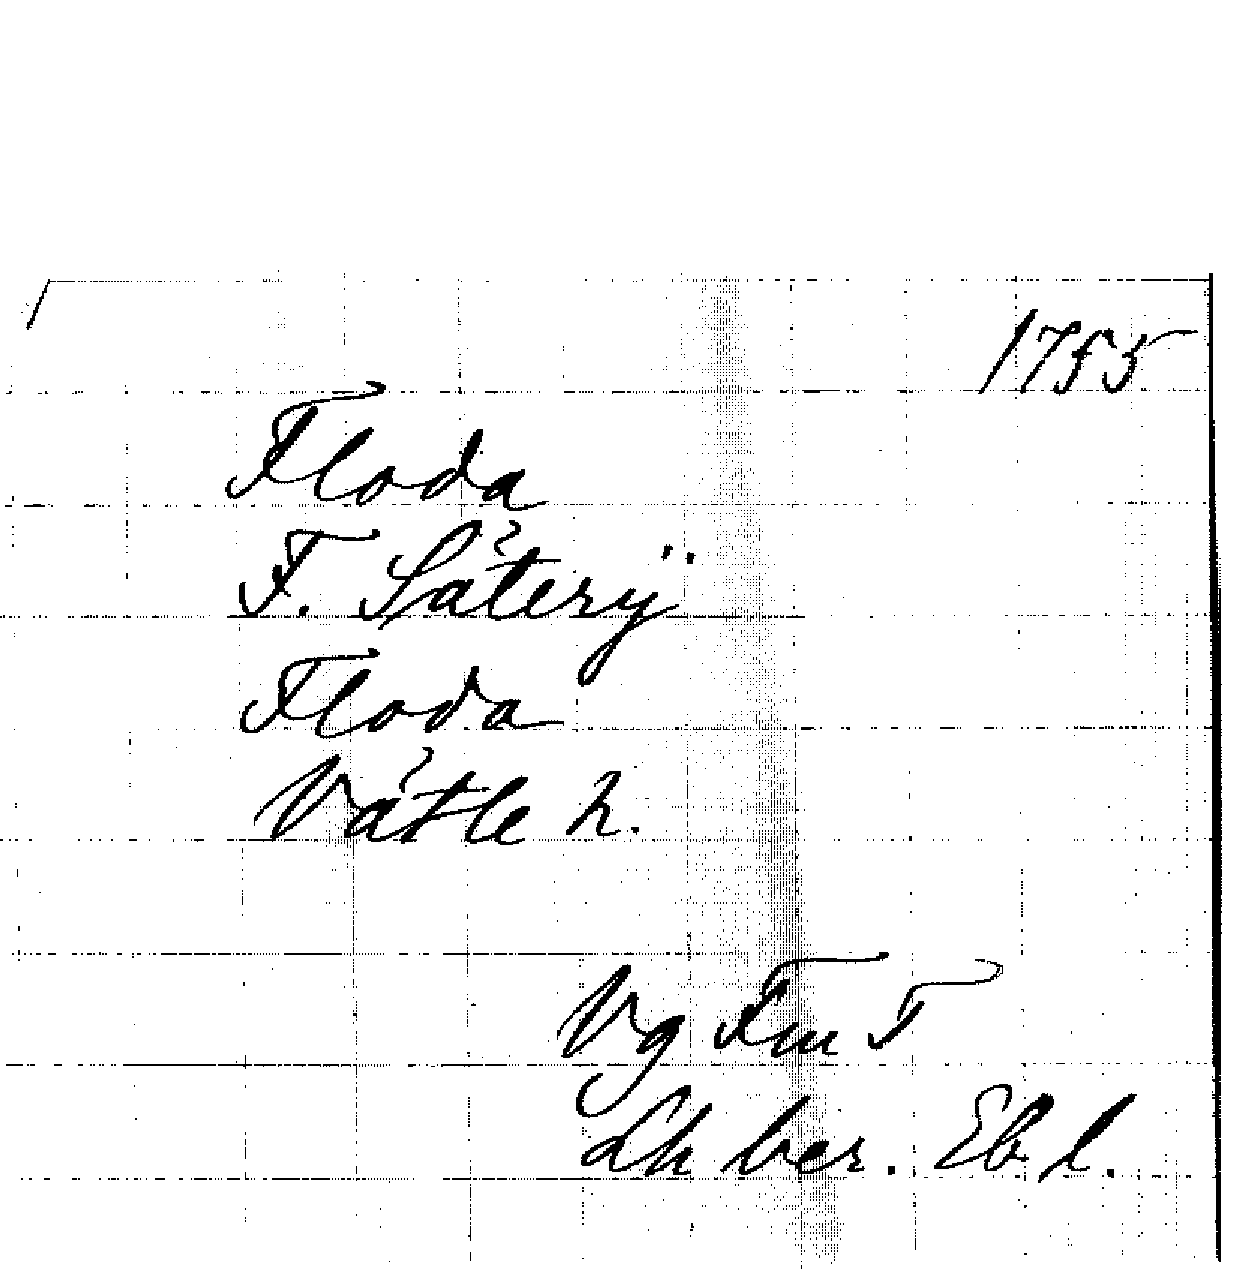 1755
Floda
F. Såterÿ
Floda
Våtle h.
Vg Fm T
Lh ber. Eb l.